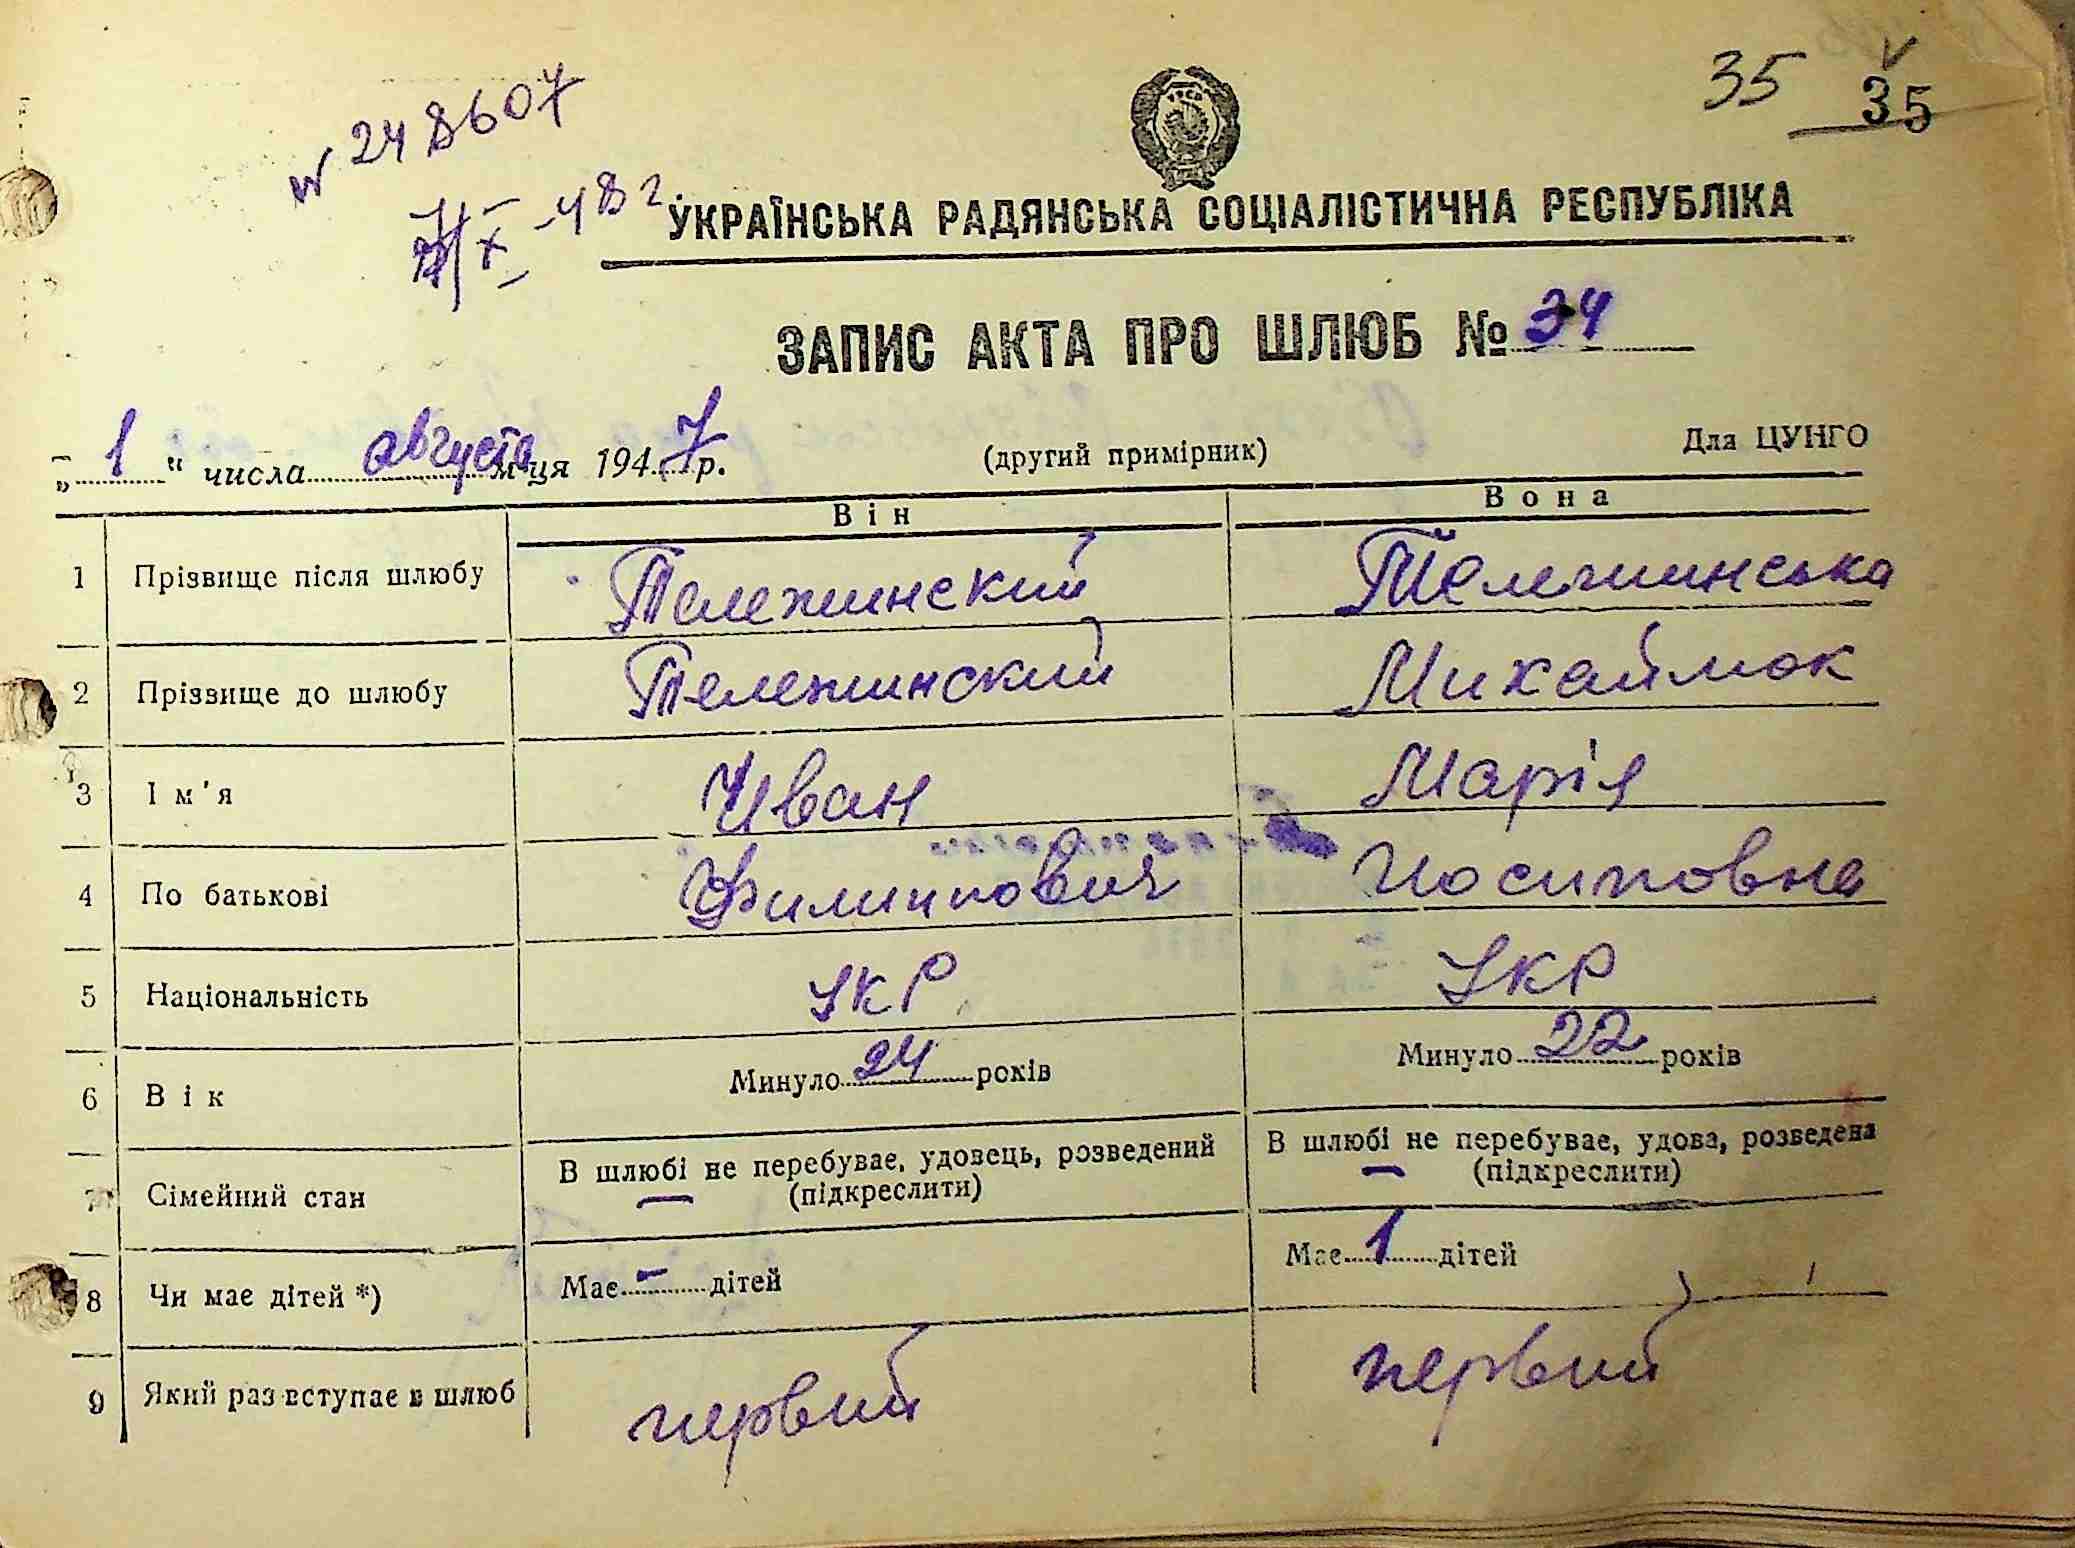 35 35
№ 248607
УКРАЇНСЬКА РАДЯНСЬКА СОЦІАЛІСТИЧНА РЕСПУБЛІКА
ЗАПИС АКТА ПРО ШЛЮБ № 34
„ 1 “ числа августа м-ця 1947 р. (другий примірник) Для ЦУНГО
Він Вона
1 Прізвище після шлюбу Тележинский Тележинська
2 Прізвище до шлюбу Тележинский Михаймок
3 Ім'я Иван Марія
4 По батькові Филиппович Иосиповна
5 Національність УКР УКР
6 Вік Минуло 24 років Минуло 22 років
7 Сімейний стан В шлюбі не перебуває, удовець, розведений (підкреслити) В шлюбі не перебуває, удова, розведена (підкреслити)
8 Чи має дітей *) Має - дітей Має 1 дітей
9 Який раз вступає в шлюб первий первий